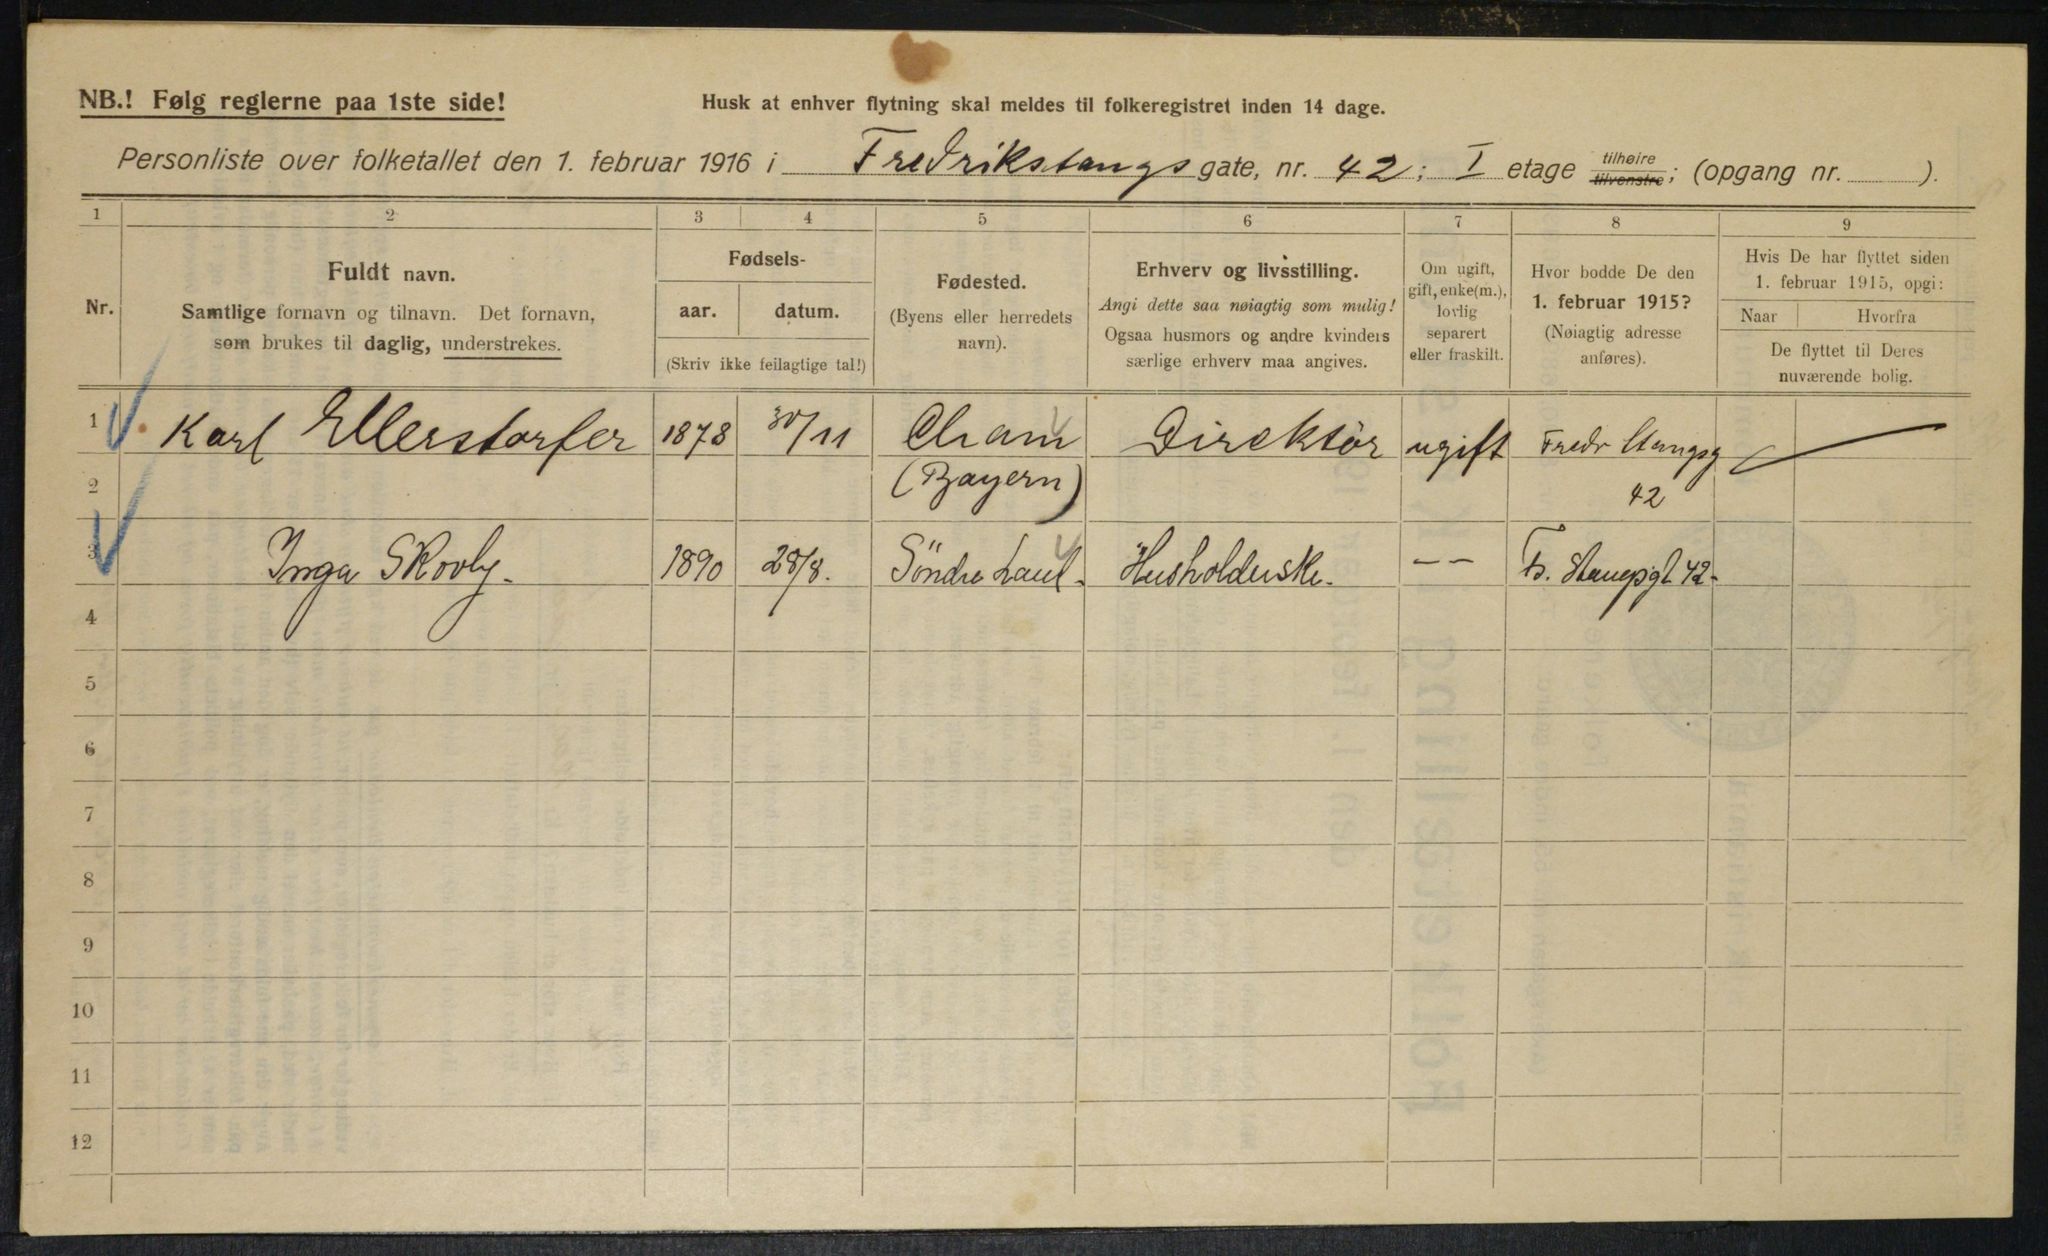 NB.! Følg reglerne paa 1ste side!
Husk at enhver flytning skal meldes til folkeregistret inden 14 dage.
Personliste over folketallet den 1. februar 1916 i Fredrikstangs gate, nr. 42; I etage tilhøire tilvenstre; (opgang nr. ).
1 2 3 4 5 6 7 8 9
Nr.
Fuldt navn.
Samtlige fornavn og tilnavn. Det fornavn,
som brukes til daglig, understrekes.
Fødsels-
aar. datum.
(Skriv ikke feilagtige tal!)
Fødested.
(Byens eller herredets
navn).
Erhverv og livsstilling.
Angi dette saa nøiagtig som mulig!
Ogsaa husmors og andre kvinders
særlige erhverv maa angives.
Om ugift,
gift, enke(m.),
lovlig
separert
eller fraskilt.
Hvor bodde De den
1. februar 1915?
(Nøiagtig adresse
anføres).
Hvis De har flyttet siden
1. februar 1915, opgi:
Naar Hvorfra
De flyttet til Deres
nuværende bolig.
1 Karl Ellerstorfer 1878 30/11 Cham Direktör ugift Fredr Stangsg
2 (Bayern) 42
3 Inga Skovly. 1890 28/8. Söndre Land. Husholderske. -- Fr. Stangsgt 42.
4
5
6
7
8
9
10
11
12